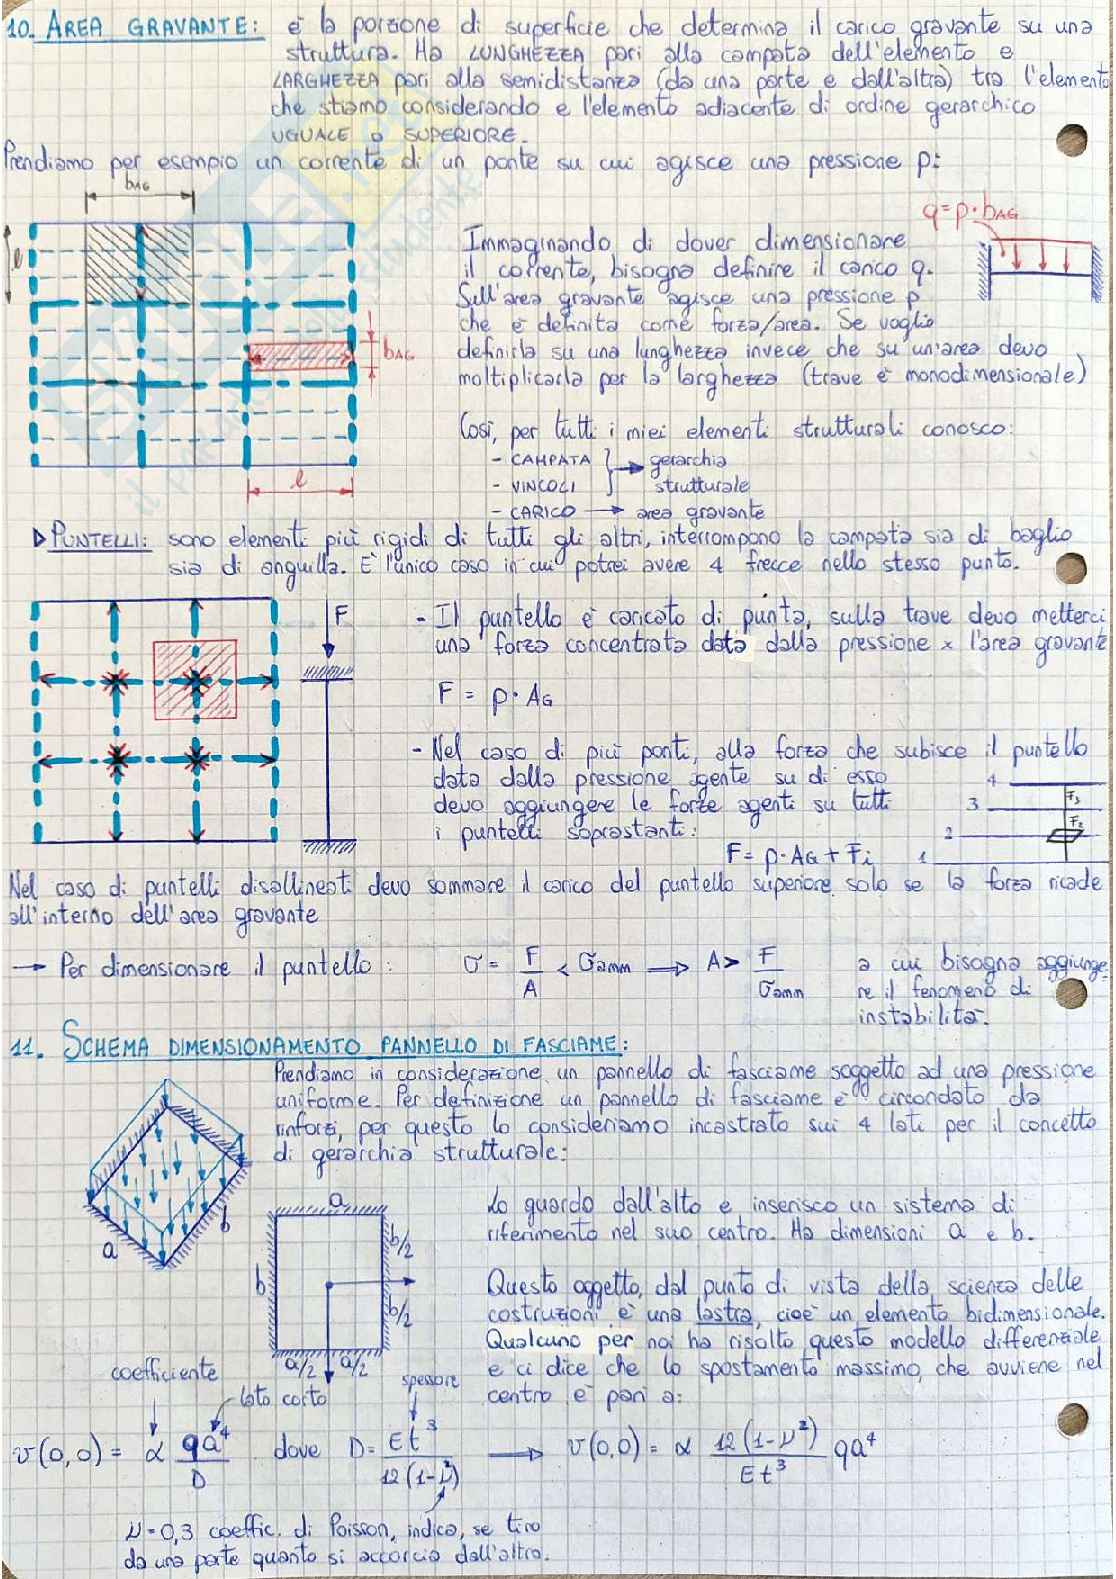 10. AREA GRAVANTE: è la porzione di superficie che determina il carico gravante su una
struttura. Ha LUNGHEZZA pari alla campata dell'elemento e
LARGHEZZA pari alla semidistanza (da una parte e dall'altra) tra l'elemento
che stiamo considerando e l'elemento adiacente di ordine gerarchico
UGUALE o SUPERIORE.
Prendiamo per esempio un corrente di un ponte su cui agisce una pressione p:
bAG
q=p·bAG
l
Immaginando di dover dimensionare
il corrente, bisogna definire il carico q.
Sull'area gravante agisce una pressione p
che è definita come forza/area. Se voglio
bAG
definirla su una lunghezza invece che su un'area devo
moltiplicarla per la larghezza (trave è monodimensionale)
Così, per tutti i miei elementi strutturali conosco:
- CAMPATA
- VINCOLI
gerarchia
strutturale
l
- CARICO → area gravante
▷ PUNTELLI: sono elementi più rigidi di tutti gli altri, interrompono la campata sia di baglio
sia di anguilla. È l'unico caso in cui potrei avere 4 frecce nello stesso punto.
F
- Il puntello è caricato di punta, sulla trave devo metterci
una forza concentrata data dalla pressione × l'area gravante
F = p·AG
- Nel caso di più ponti, alla forza che subisce il puntello
data dalla pressione agente su di esso
devo aggiungere le forze agenti su tutti
i puntelli soprastanti:
4
F3
3
F2
2
1
F = p·AG + Fi
Nel caso di puntelli disallineati devo sommare il carico del puntello superiore solo se la forza ricade
all'interno dell'area gravante
→ Per dimensionare il puntello: σ = F/A < σamm → A > F/σamm a cui bisogna aggiunge
re il fenomeno di
instabilità.
11. SCHEMA DIMENSIONAMENTO PANNELLO DI FASCIAME:
Prendiamo in considerazione un pannello di fasciame soggetto ad una pressione
uniforme. Per definizione un pannello di fasciame è circondato da
rinforzi, per questo lo consideriamo incastrato sui 4 lati per il concetto
di gerarchia strutturale:
a
b
a
b
b/2
b/2
a/2
a/2
Lo guardo dall'alto e inserisco un sistema di
riferimento nel suo centro. Ha dimensioni a e b.
Questo oggetto, dal punto di vista della scienza delle
costruzioni, è una lastra, cioè un elemento bidimensionale.
Qualcuno per noi ha risolto questo modello differenziale
e ci dice che lo spostamento massimo, che avviene nel
centro è pari a:
coefficiente
lato corto
spessore
v(0,0) = α qa⁴/D dove D = Et³/12(1-ν²) → v(0,0) = α 12(1-ν²)/Et³ qa⁴
ν = 0,3 coeffic. di Poisson, indica, se tiro
da una parte quanto si accorcia dall'altra.